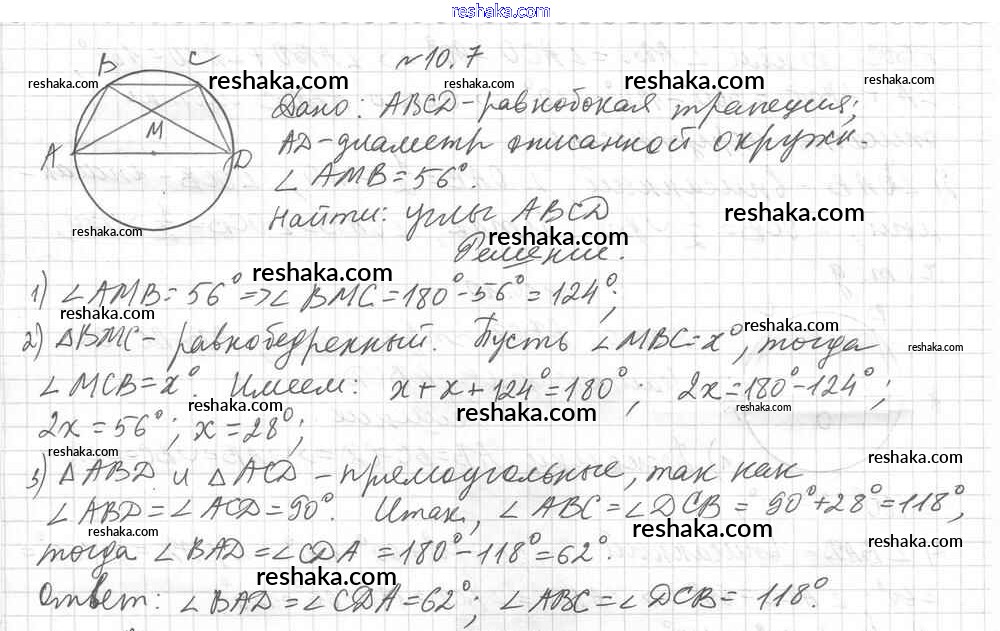 reshaka.com
№ 10.7
B C
reshaka.com reshaka.com reshaka.com
Дано: ABCD-равнобокая трапеция;
M
A D
AD-диаметр описанной окружн.
∠AMB=56°.
Найти: углы ABCD
reshaka.com
reshaka.com
reshaka.com
Решение.
reshaka.com
1) ∠AMB=56° => ∠BMC=180°-56°=124°;
reshaka.com
reshaka.com
2) ΔBMC- равнобедренный. Пусть ∠MBC=x°, тогда
reshaka.com
∠MCB=x°. Имеем: x+x+124°=180°; 2x=180°-124°;
reshaka.com
reshaka.com
reshaka.com
2x=56°; x=28°;
reshaka.com
reshaka.com
3) ΔABD и ΔACD-прямоугольные, так как
∠ABD=∠ACD=90°. Итак, ∠ABC=∠DCB = 90°+28°=118°,
reshaka.com
reshaka.com
reshaka.com
тогда ∠BAD=∠CDA=180°-118°=62°.
reshaka.com
Ответ: ∠BAD=∠CDA=62°; ∠ABC=∠DCB=118°.